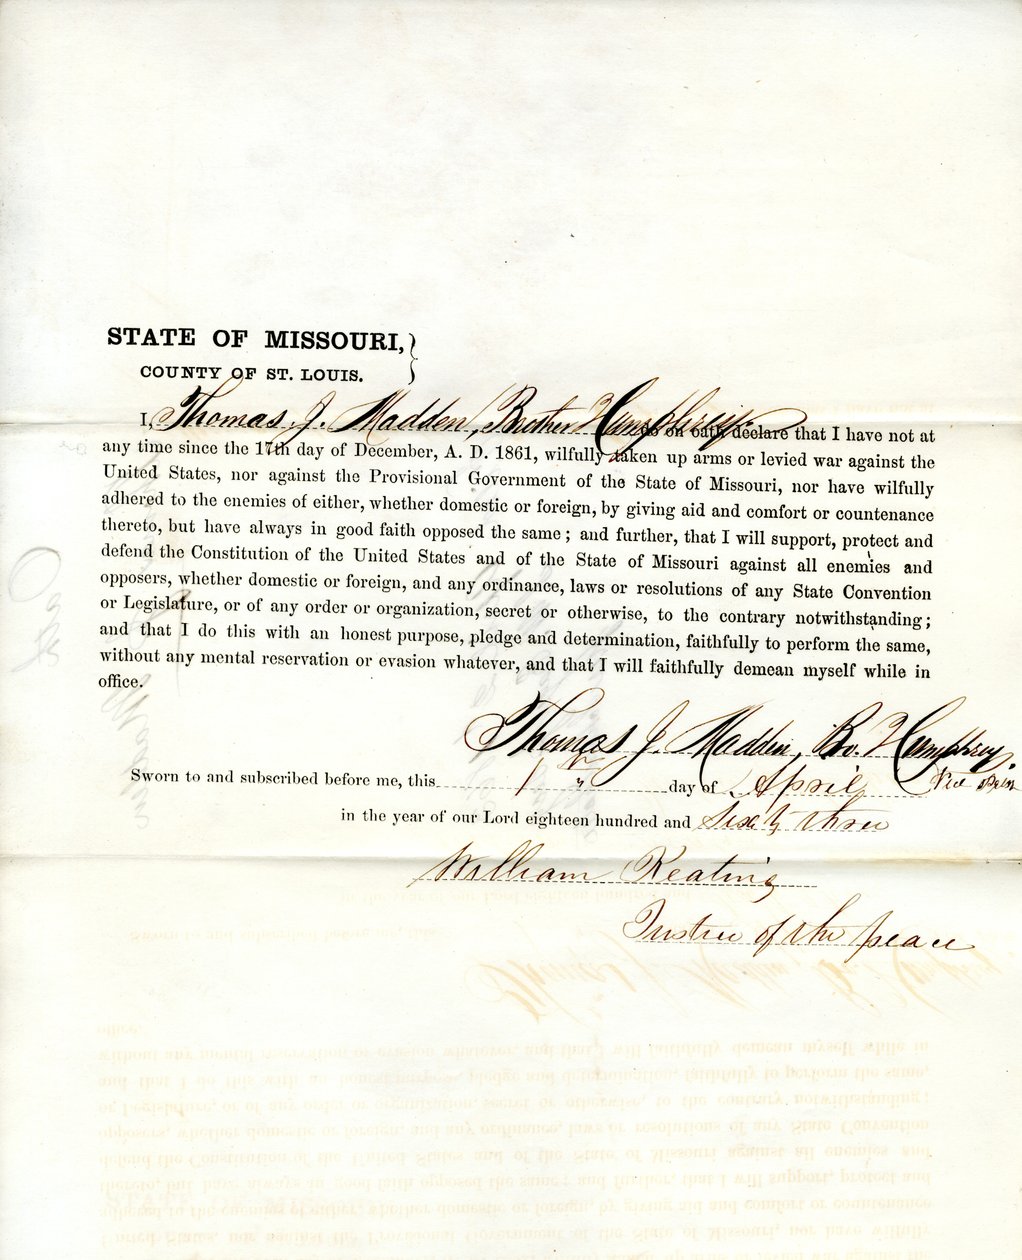 STATE OF MISSOURI,
COUNTY OF ST. LOUIS.
I, Thomas J. Madden, Brother Humphrey. do on oath declare that I have not at
any time since the 17th day of December, A. D. 1861, wilfully taken up arms or levied war against the
United States, nor against the Provisional Government of the State of Missouri, nor have wilfully
adhered to the enemies of either, whether domestic or foreign, by giving aid and comfort or countenance
thereto, but have always in good faith opposed the same; and further, that I will support, protect and
defend the Constitution of the United States and of the State of Missouri against all enemies and
opposers, whether domestic or foreign, and any ordinance, laws or resolutions of any State Convention
or Legislature, or of any order or organization, secret or otherwise, to the contrary notwithstanding;
and that I do this with an honest purpose, pledge and determination, faithfully to perform the same,
without any mental reservation or evasion whatever, and that I will faithfully demean myself while in
office.
Thomas J. Madden, Bro. Humphrey.
Vice
Sworn to and subscribed before me, this 1st day of April
in the year of our Lord eighteen hundred and Sixty three
William Keating
Justice of the peace